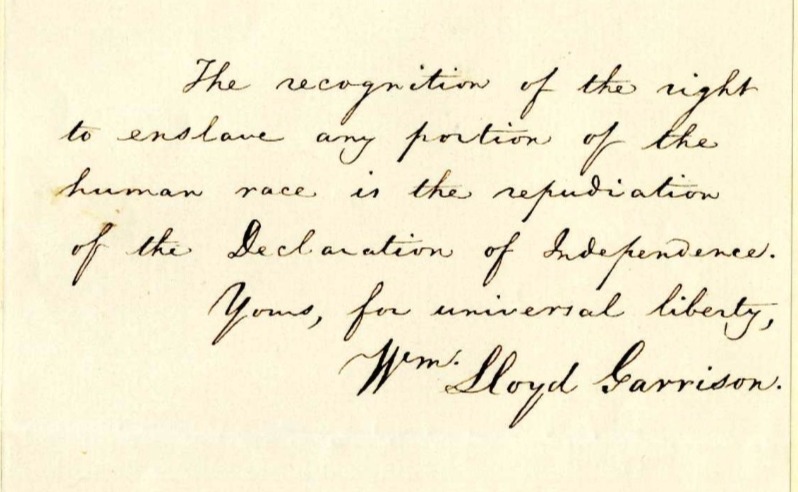 The recognition of the right
to enslave any portion of the
human race is the repudiation
of the Declaration of Independence.
Yours, for universal liberty,
Wm. Lloyd Garrison.